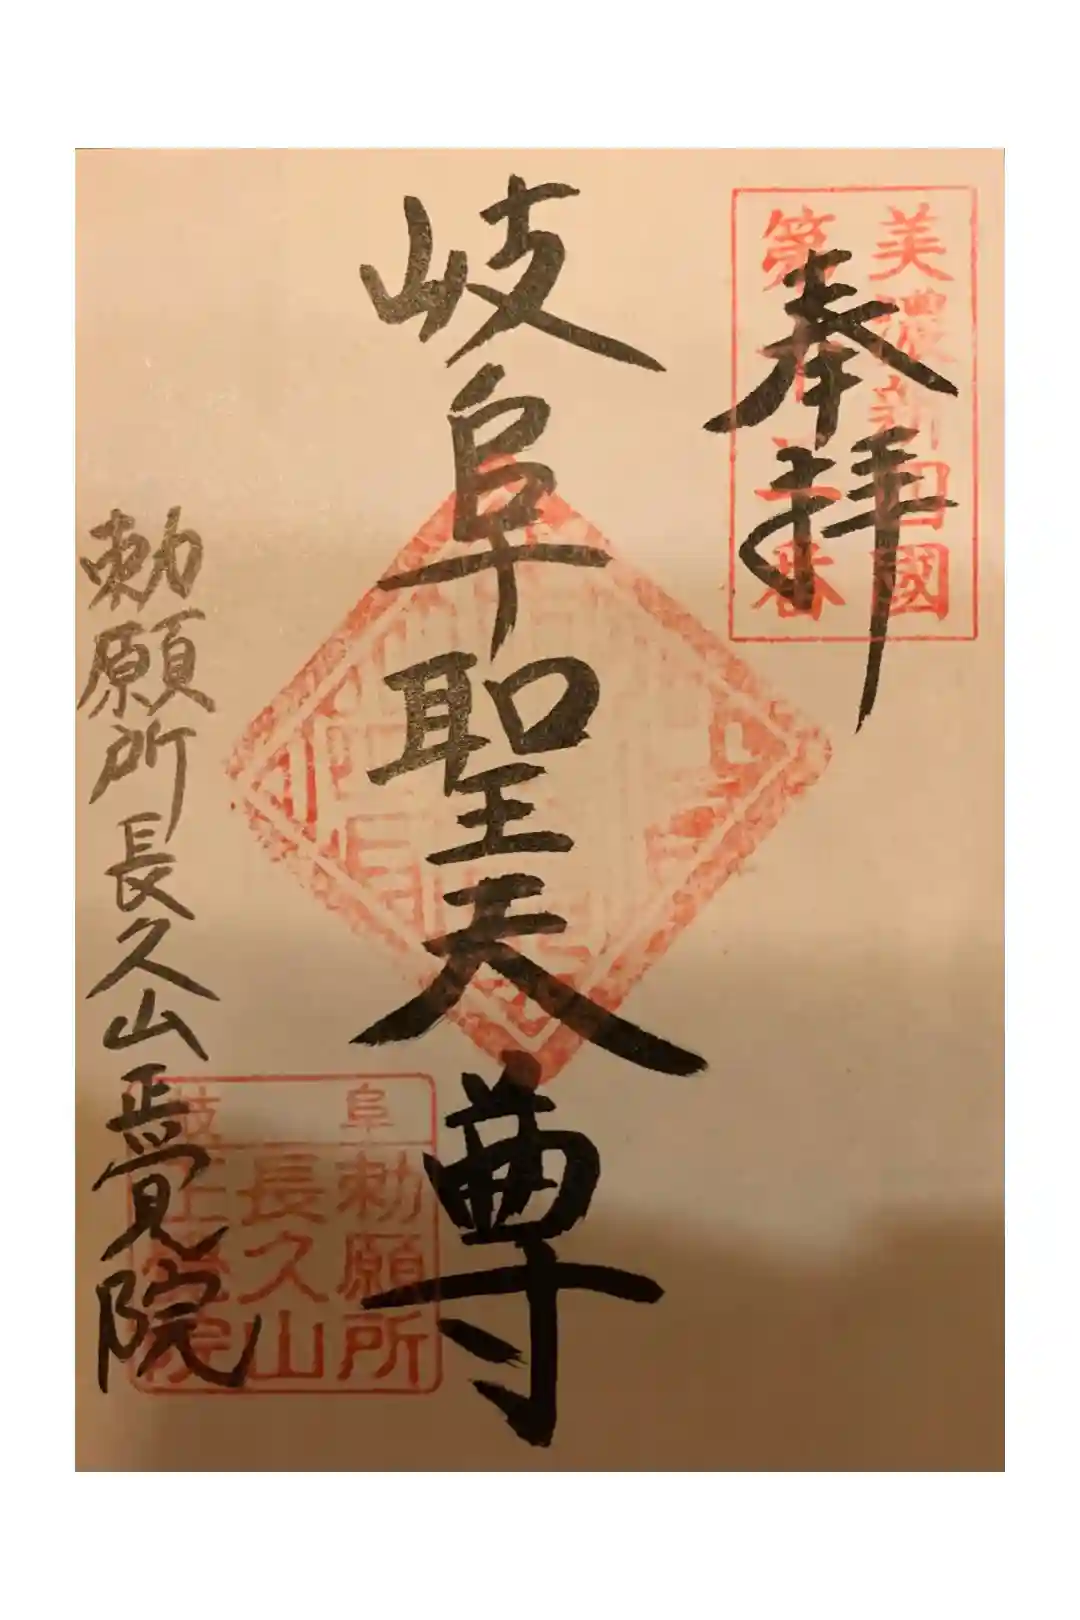 奉拝
美濃新四國
第十三番
岐阜聖天尊
勅願所長久山正覚院
岐阜
勅願所
長久山
正覺院